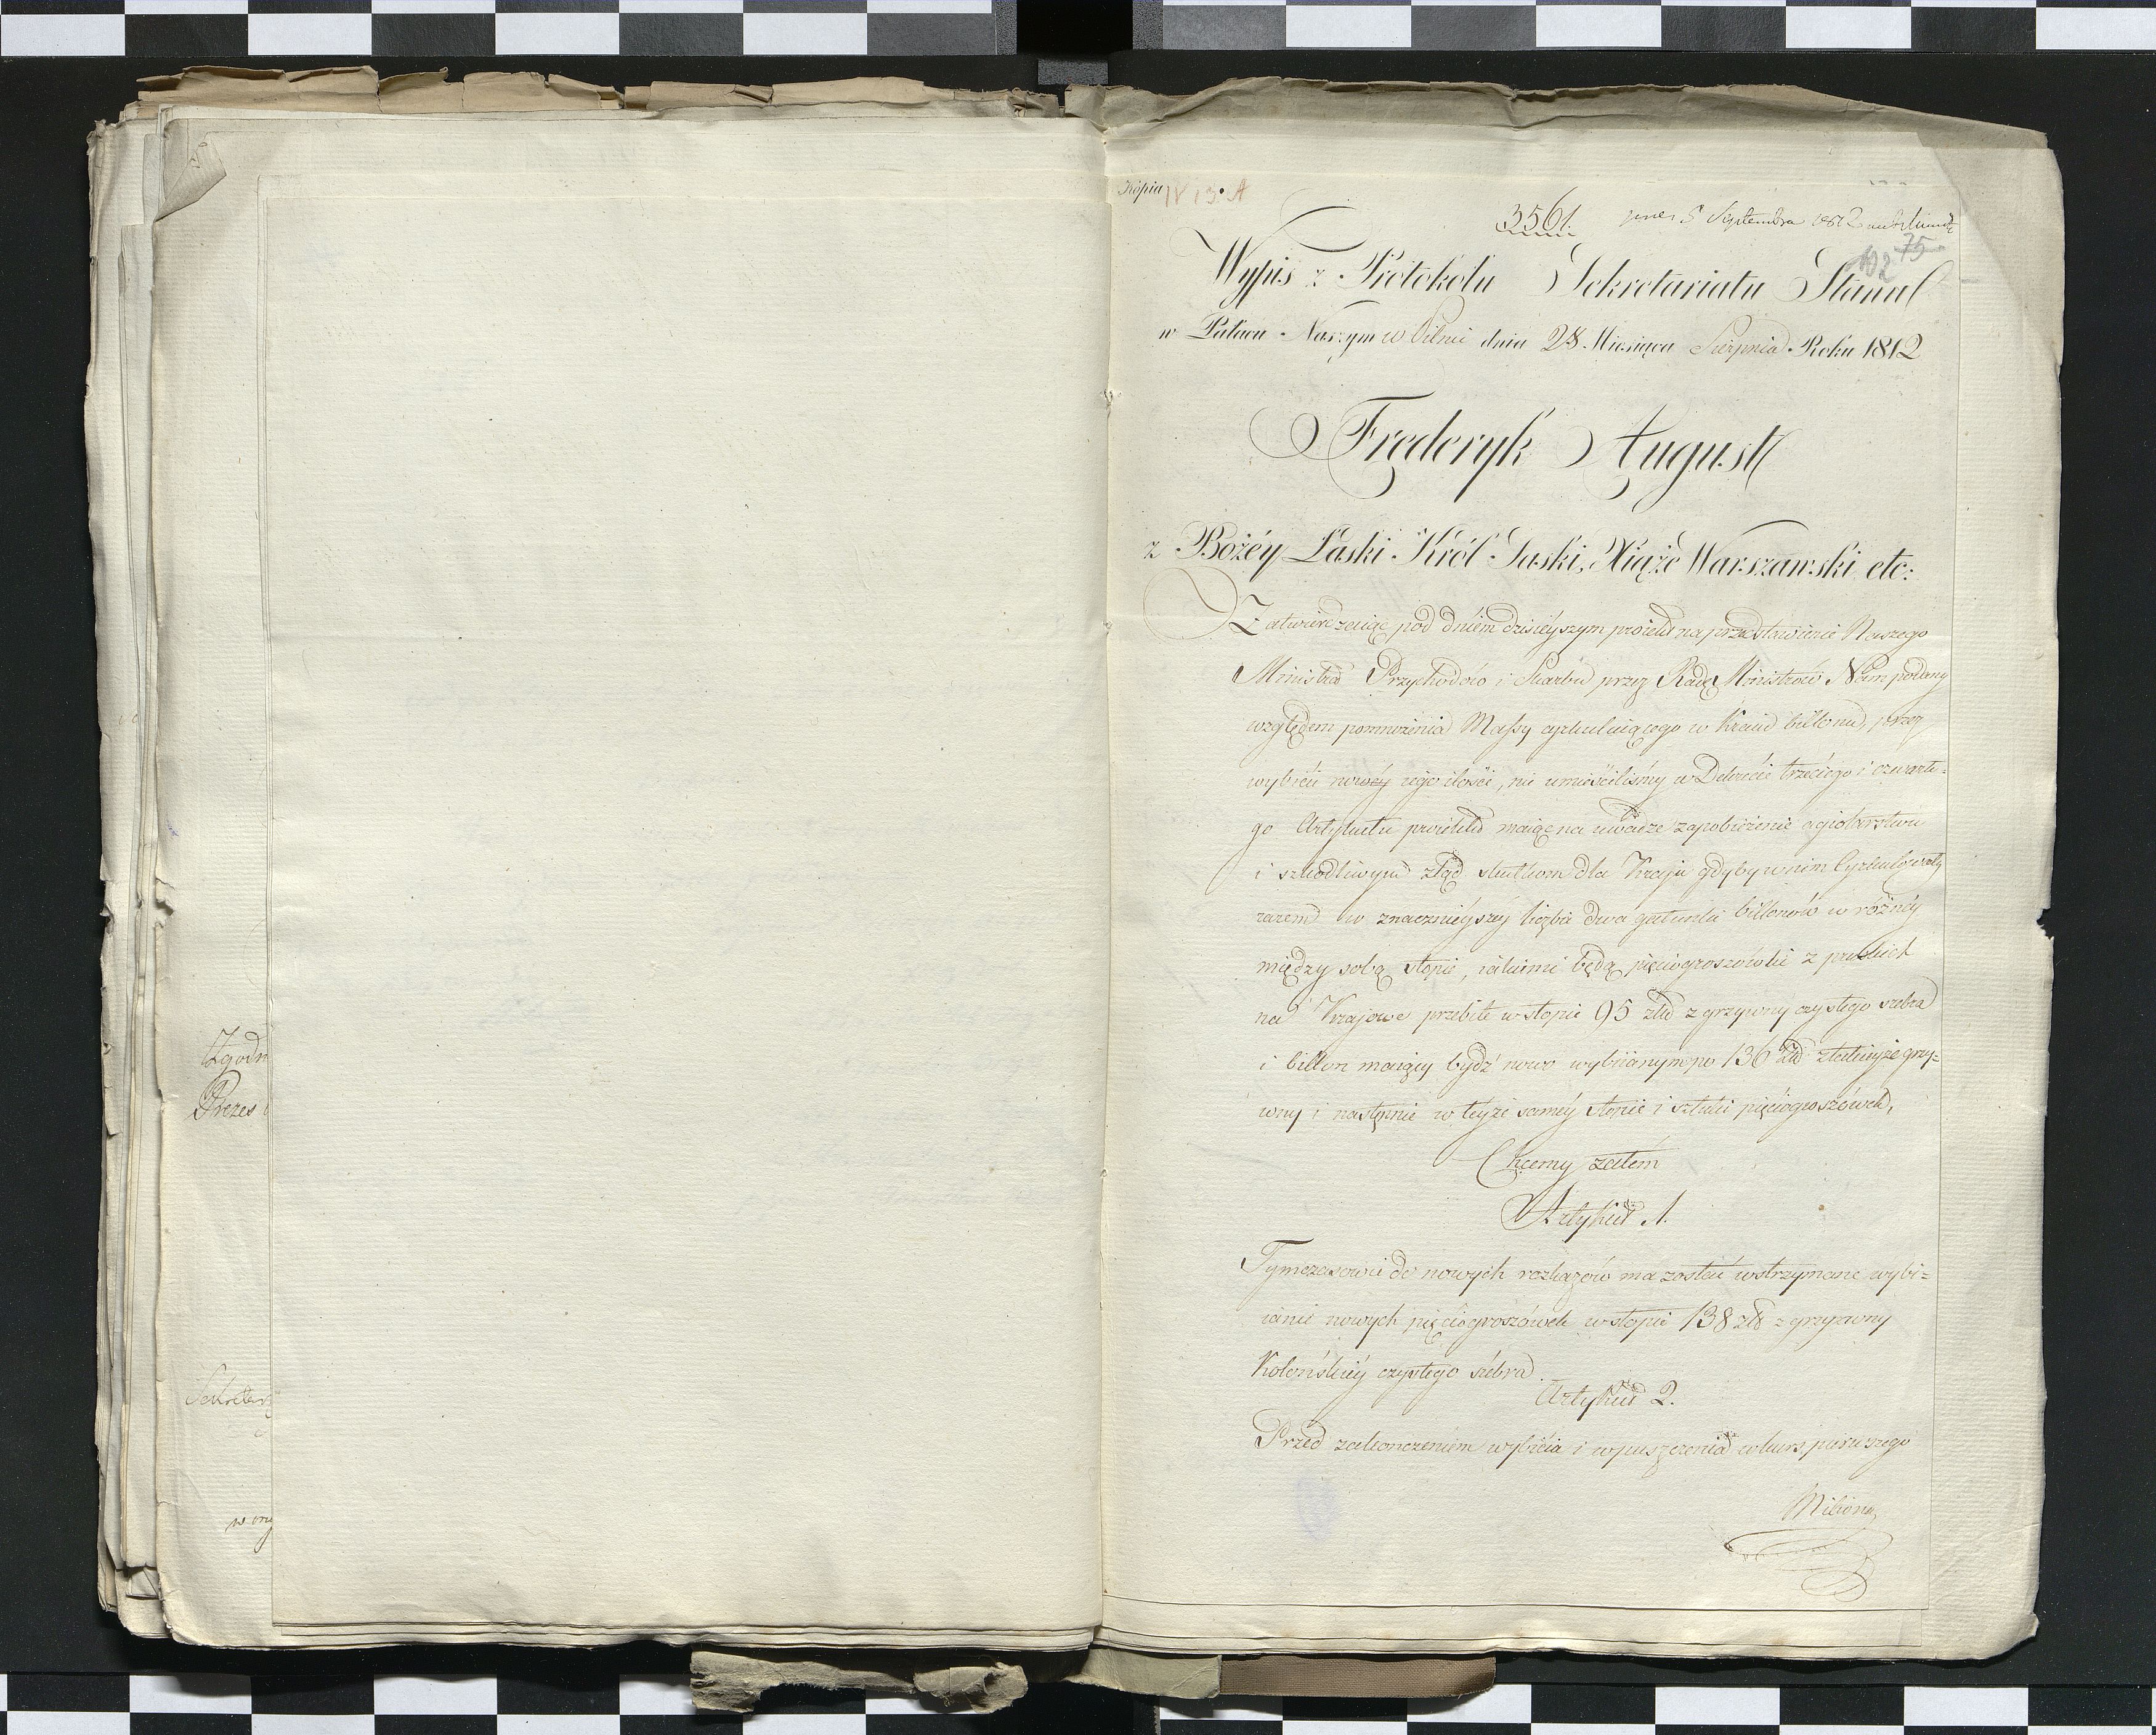 Zgodn
Prezes
Sekretarz
w ory
Kopia IV 13. A
3561. 5 Septembra 1812
102 75
Wypis z Protokołu Sekretariatu Stanu
w Pałacu Naszym w Pilnic dnia 28 Miesiąca Sierpnia Roku 1812
Fręderyk August
z Bożéy Łaski Król Saski, Xiąże Warszawski etc:
Zatwierdzaiąc pod dniem dzisieyszym proiekt na przedstawienie Naszego
Ministra Przychodów i Skarbu przez Radę Ministrów Nam podany
względem pomnożenia Massy cyrkuluiącego w Kraiu billonu, przez
wybicie nowéy iego ilości, nie umieściliśmy w Dekrecie trzeciego i czwarte=
go Artykułu proiektu maiąc na uwadze zapobieżenie agiotarstwu
i szkodliwym ztąd skutkom dla Kraju gdyby w nim Cyrkulowały
razem w znacznieyszey liczbie dwa gatunki billonów w różnéy
między sobą stopie, iakiemi będą pięciogroszówki z pruskich
na Krajowe przebite w stopie 95 złł z grzywny czystego srebra
i billon maiący bydź nowo wybiianym po 136 złł z takieyże grzy=
wny i następnie w teyże saméy stopie i sztuki pięciogroszówek,
Chcemy zatém
Artykuł 1.
Tymczasowie do nowych rozkazów ma zostać wstrzymane wybi=
ianie nowych pięciogroszówek w stopie 138 złł z grzywny
Kolońskiéy czystego srébra.
Artykuł 2.
Przed zakonczeniem wybicia i wpuszczenia w kurs pierwszego
Miliona